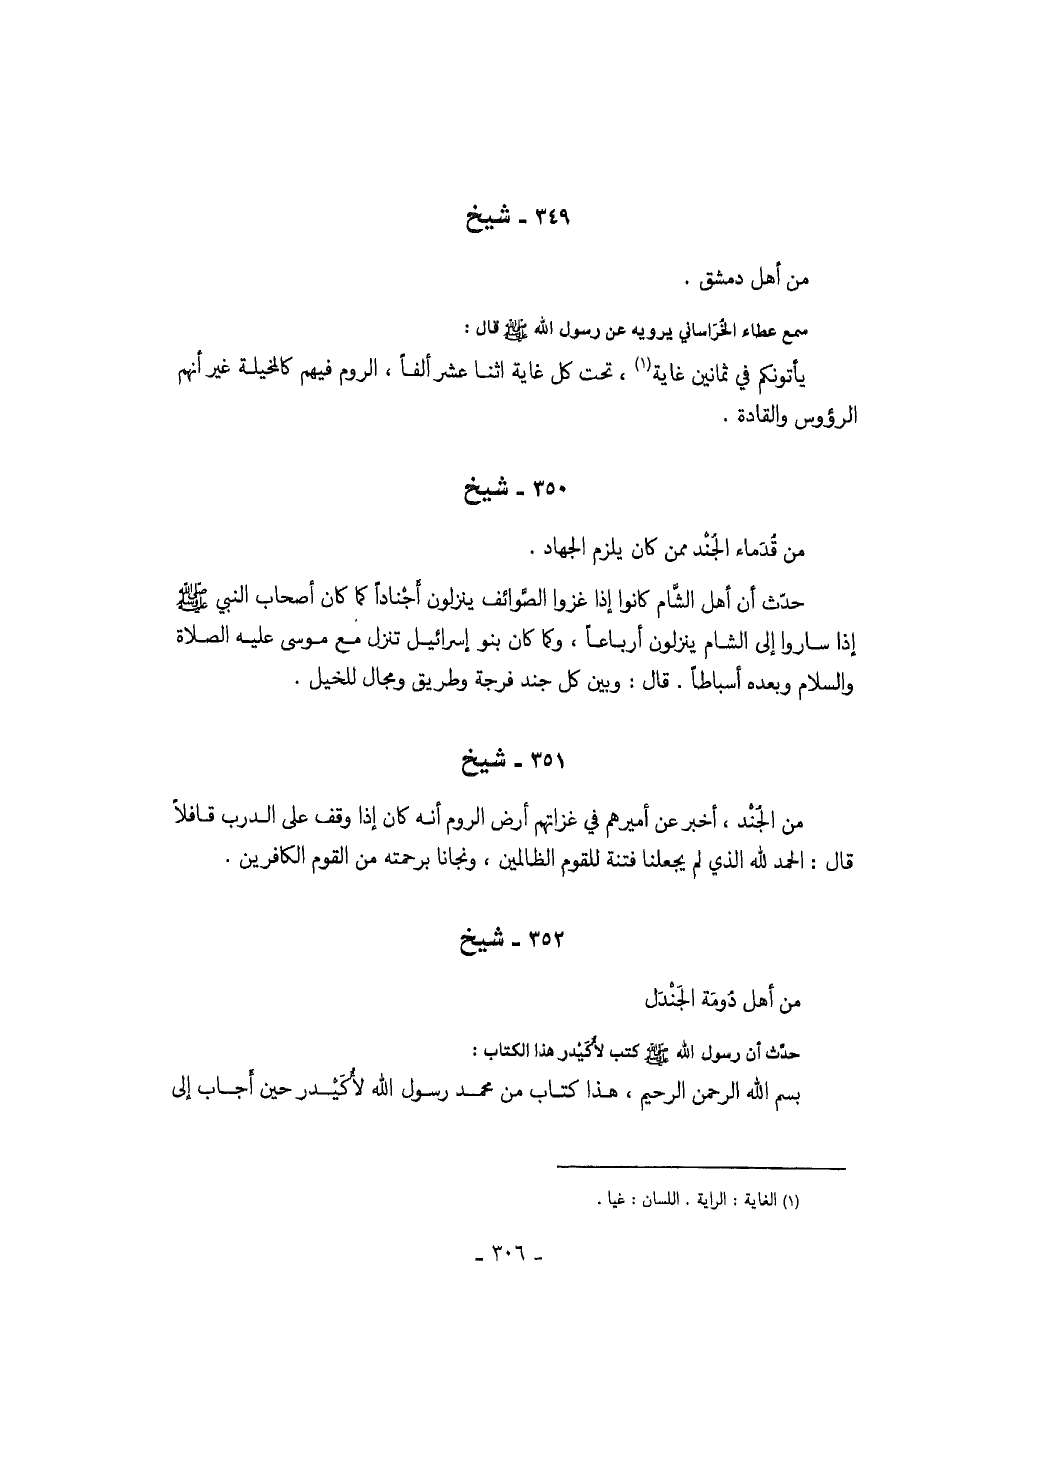 ٣٤٩ ـ شيخ
من أهل دمشق .
سمع عطاء الخُرَاساني يرويه عن رسول الله ﷺ قال :
يأتونكم في ثمانين غاية(١) ، تحت كل غاية اثنا عشر ألفاً ، الروم فيهم كالمخيلة غير أنهم
الرؤوس والقادة .
٣٥٠ ـ شيخ
من قُدَماء الجُنْد ممن كان يلزم الجهاد .
حدّث أن أهل الشَّام كانوا إذا غزوا الصَّوائف ينزلون أَجْناداً كما كان أصحاب النبي ﷺ
إذا ساروا إلى الشام ينزلون أرباعاً ، وكما كان بنو إسرائيل تنزل مع موسى عليه الصلاة
والسلام وبعده أسباطاً . قال : وبين كل جند فرجة وطريق ومجال للخيل .
٣٥١ ـ شيخ
من الجُنْد ، أخبر عن أميرهم في غزاتهم أرض الروم أنه كان إذا وقف على الدرب قافلاً
قال : الحمد لله الذي لم يجعلنا فتنة للقوم الظالمين ، ونجانا برحمته من القوم الكافرين .
٣٥٢ ـ شيخ
من أهل دُومَة الجَنْدَل
حدَّث أن رسول الله ﷺ كتب لأُكَيْدر هذا الكتاب :
بسم الله الرحمن الرحيم ، هذا كتاب من محمد رسول الله لأُكَيْدر حين أَجاب إلى
(١) الغاية : الراية . اللسان : غيا .
ـ ٣٠٦ ـ